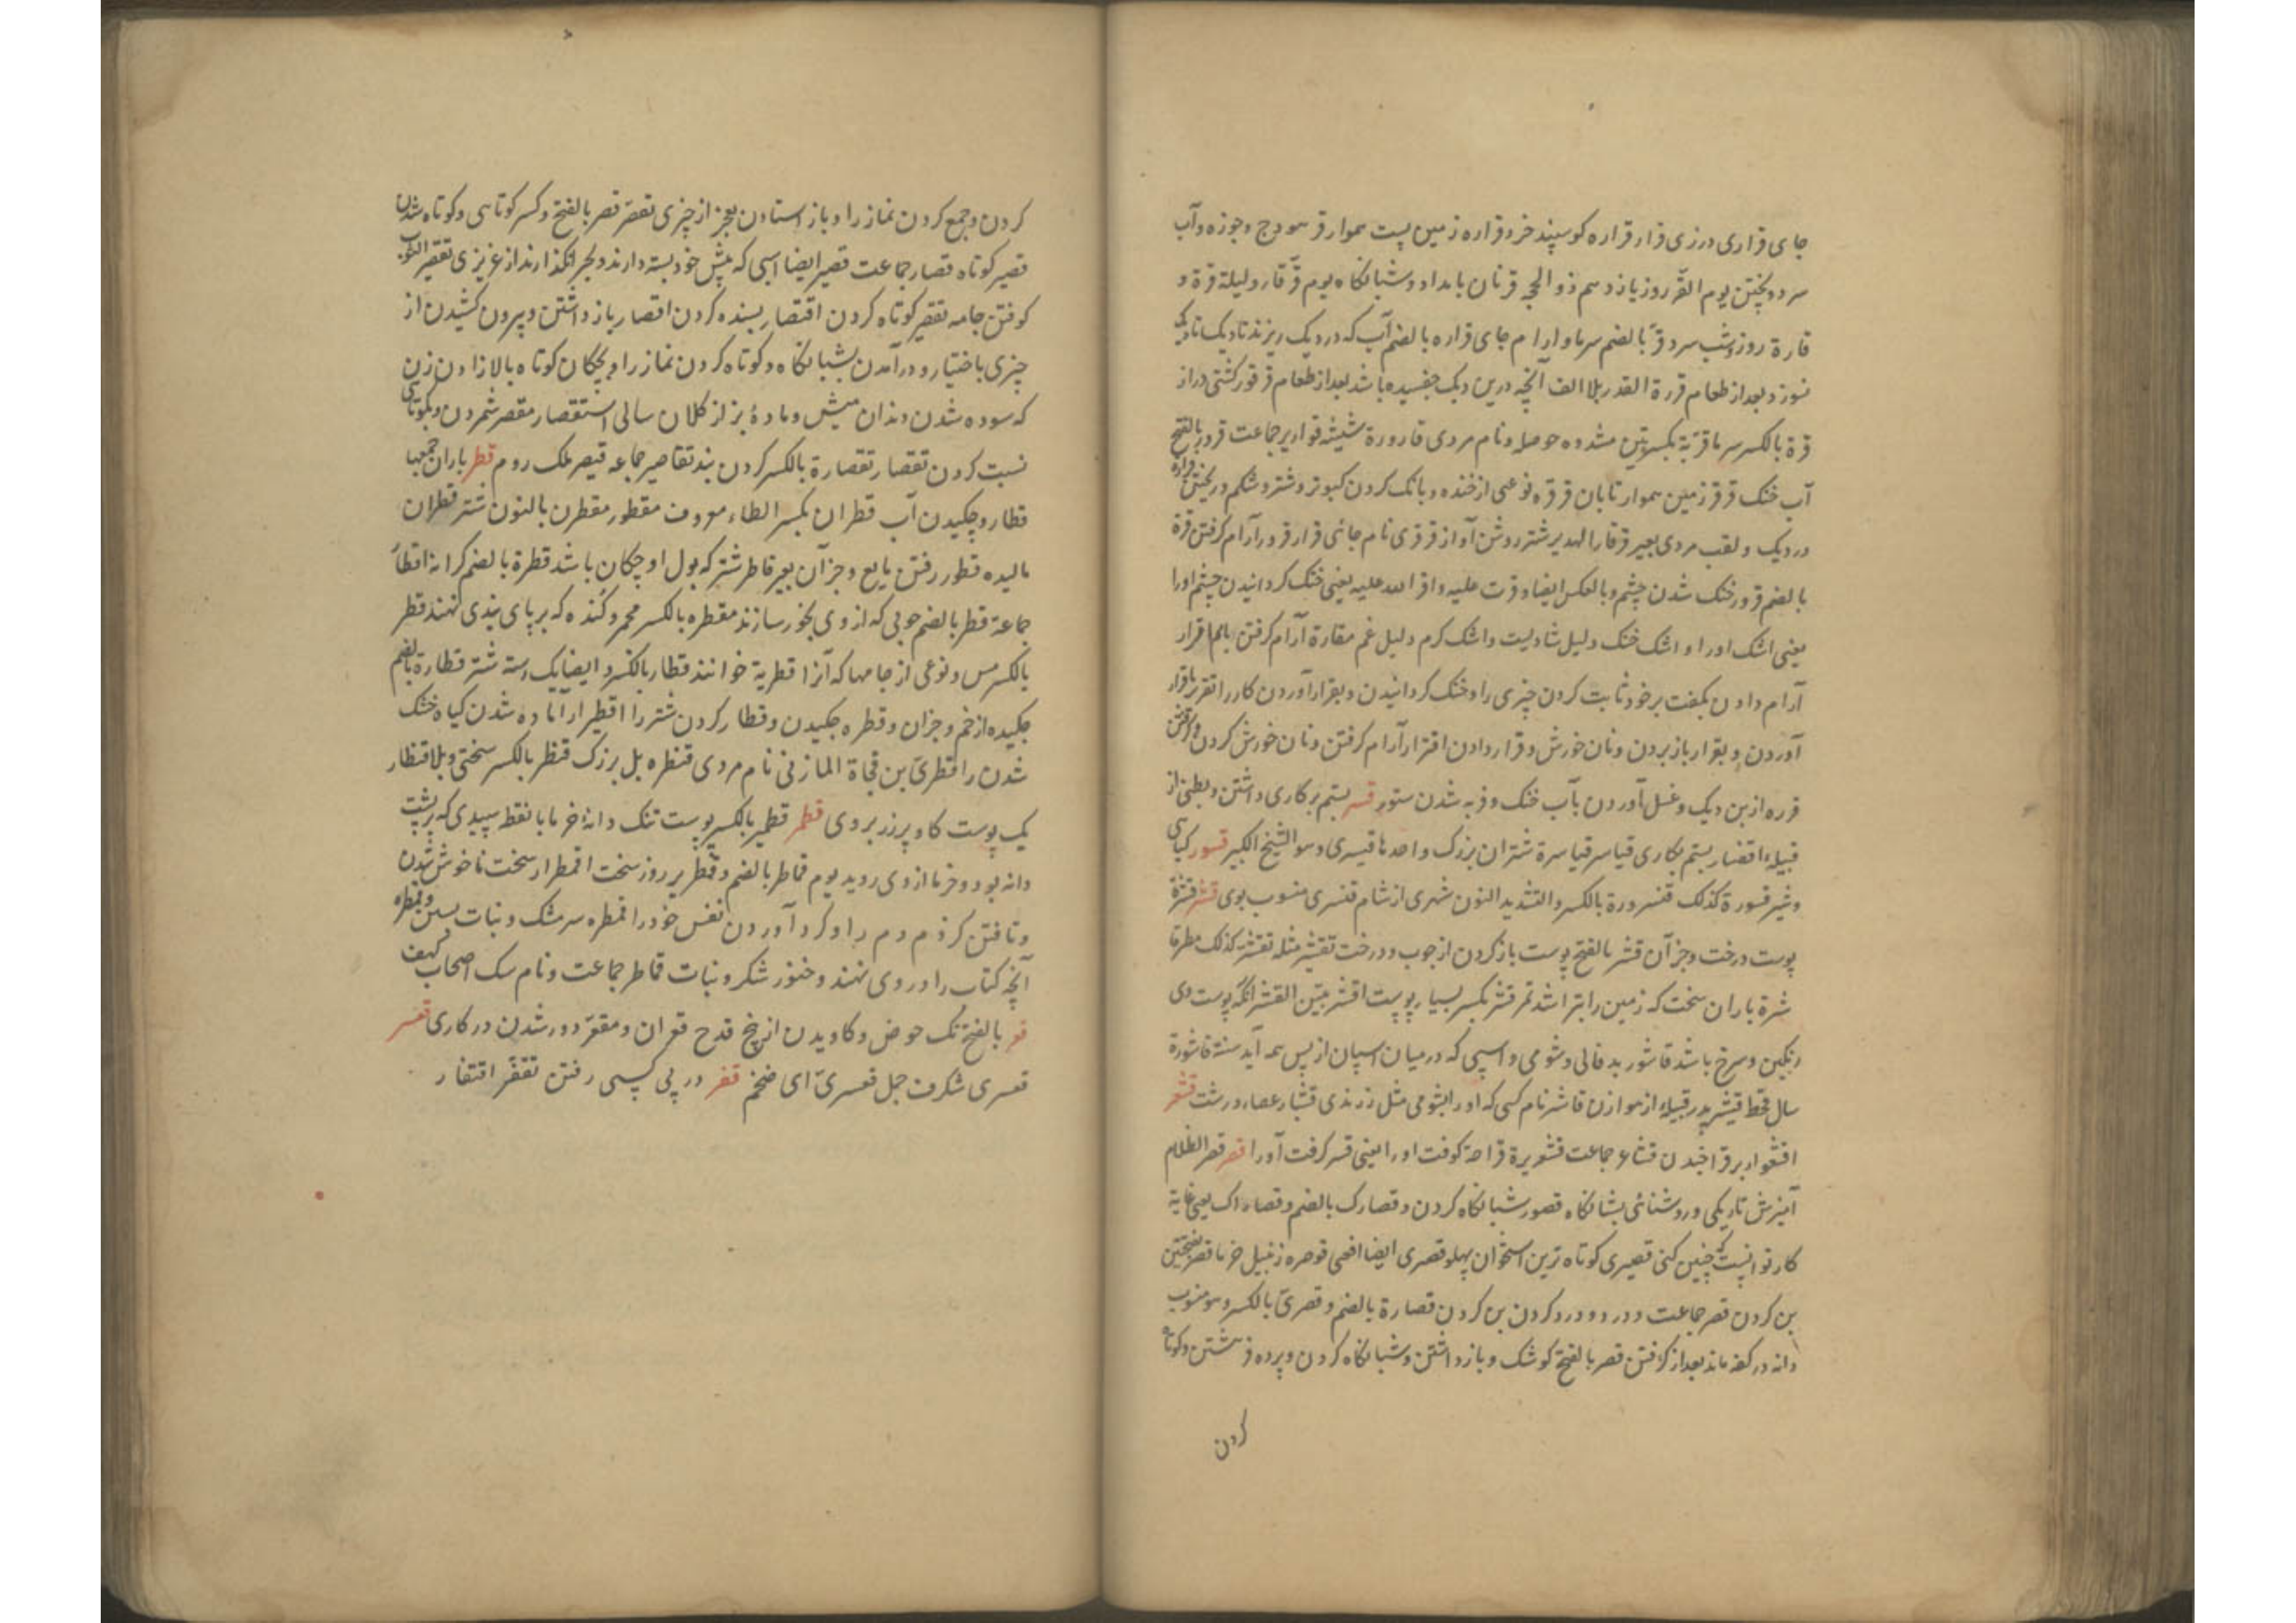 جای قراری درزی قرار قراره کوسپند خرد قراره زمین پست هموار قر هودج وجوزه وآب
سرد ریختن یوم القر روز یازدهم ذوالحجه قرتان بامداد وشبانکاه یوم قر قار ولیلة قرة و
قارة روز وشب سرد قر بالضم سرما وارام جای قراره بالضم آب که در دیک ریزند تا دیک
نسوزد بعد از طعام قررة القدر بلا الف آنچه در بن دیک چفسیده باشد بعد از طعام قرقور کشتی دراز
قرة بالکسر سرما قریة بکسرتین مشدده حوصله ونام مردی قارورة شیشه قواریر جماعت قرور بالفتح
آب خنک قرقر زمین هموار تابان قرقره نوعی از خنده وبانک کردن کبوتر وشتر وشکم وریختن
در دیک ولقب مردی بعیر قرقار الهدیر شتر روشن آواز قرقری نام جائی قرار قرور آرام کرفتن قرة
بالضم قرور خنک شدن چشم وبالعکس ایضا وقرت علیه واقر الله علیه یعنی خنک کردانیدن چشم اورا
یعنی اشک اورا واشک خنک دلیل شادیست واشک کرم دلیل غم مقارة آرام کرفتن باهم اقرار
آرام دادن بکفت برخود ثابت کردن چیزی را وخنک کردانیدن وبقرار آوردن کار را تقریر باقرار
آوردن وبقرار باز بردن ونان خورش وقرار دادن اقترار آرام کرفتن ونان خورش کردن
قرره از بن دیک وغسل آوردن بآب خنک وفربه شدن ستور قسر بستم برکاری داشتن وبطنی از
قبیله اقتسار بستم بکاری قیاسر قیاسرة شتران بزرک واحدها قیسری وهو الشیخ الکبیر قسور کیاهی
وشیر قسورة کذلک قنسرورة بالکسر والتشدید النون شهری از شام قنسری منسوب بوی قشر قشرة
پوست درخت وجز آن قشر بالفتح پوست باز کردن از چوب ودرخت تقشیر مثله تقشر کذلک مطرة قا
شرة باران سخت که زمین را بتراشد تمر قشر بکسر بسیار پوست اقشر بین القشر آنکه پوست وی
رنکین وسرخ باشد قاشور بدفالی وشومی واسپی که درمیان اسپان از پس همه آید سنة قاشورة
سال قحط قیشر پدر قبیله از هوازن قاشر نام کسی که اورا بشومی مثل زنندی قشبار عصاء درشت قشعر
اقشعرار برفراخیدن قشاعر جماعت قشعریرة قراحة کوفت اورا یعنی قسر کرفت آورا قصر قصر الظلام
آمیزش تاریکی وروشنائی بشبانکاه قصور شبانکاه کردن وقصارک بالضم وقصاراک یعنی غایة
کار تو اینست که چنین کنی قصیری کوتاه ترین استخوان پهلو قصری ایضا افعی قوصره زنبیل خرما قصر بفتحتین
بن کردن قصر جماعت ودرد ودرد کردن بن کردن قصارة بالضم وقصری بالکسر وهو منسوب
دانه در کفه ماند بعد از کوفتن قصر بالفتح کوشک وباز داشتن وشبانکاه کردن وپرده فروهشتن وکوتاه
کردن
کردن وجمع کردن نماز را وباز استادن بعجز از چیزی تقصر قصر بالفتح وکسر کوتاهی وکوتاه شدن
قصیر کوتاه قصار جماعت قصیر ایضا اسبی که پیش خود بسته دارند وبچر انکذارند از عزیزی تقصیر الثوب
کوفتن جامه تقصیر کوتاه کردن اقتصار بسنده کردن اقصار باز داشتن وبیرون کشیدن از
چیزی باختیار ودر آمدن بشبانکاه وکوتاه کردن نماز را وبچکان کوتاه بالا زادن زن
که سوده شدن دندان میش وماده بز از کلان سالی استقصار مقصر شمردن وبکوتاهی
نسبت کردن تقصار تقصارة بالکسر کردن بند تقاصیر جماعه قیصر ملک روم قطر باران جمعها
قطار وچکیدن آب قطران بکسر الطاء معروف مقطور مقطرن بالنون شتر قطران
مالیده قطور رفتن مایع وجز آن بعیر قاطر شتر که بول او چکان باشد قطرة بالضم کرانه اقطار
جماعة قطر بالضم چوبی که از وی بخور سازند مقطره بالکسر مجمر وکنده که بر پای بندی نهند قطر
بالکسر مس ونوعی از جامها که آنرا قطریة خوانند قطار بالکسر وایضا یک رسته شتر قطارة بالضم
چکیده از خم وجز آن وقطره چکیدن وقطار کردن شتر را اقطیرار آماده شدن کیاه خشک
شدن را قطری بن فجاة المازنی نام مردی قنطره پل بزرک قنطر بالکسر سختی وبلا قنطار
یک پوست کاو پر زر بروی قطمر قطمیر بالکسر پوست تنک دانه خرما با نقطه سپیدی که بر پشت
دانه بود وخرما از وی روید یوم قماطر بالضم وقمطریر روز سخت اقمطرار سخت ناخوش شدن
وتافتن کژدم دم را وکرد آوردن نفس خود را قمطره سر مشک ونبات بستن وقمطره
آنچه کتاب را در وی نهند وخنوز شکر ونبات قماطر جماعت ونام سک اصحاب کهف
قعر بالفتح تک حوض وکاویدن از بیخ قدح قعران ومقعر دور شدن در کاری قعسر
قعسری شکرف جمل قعسری ای ضخم قفر در پی کسی رفتن تقفر اقتفار